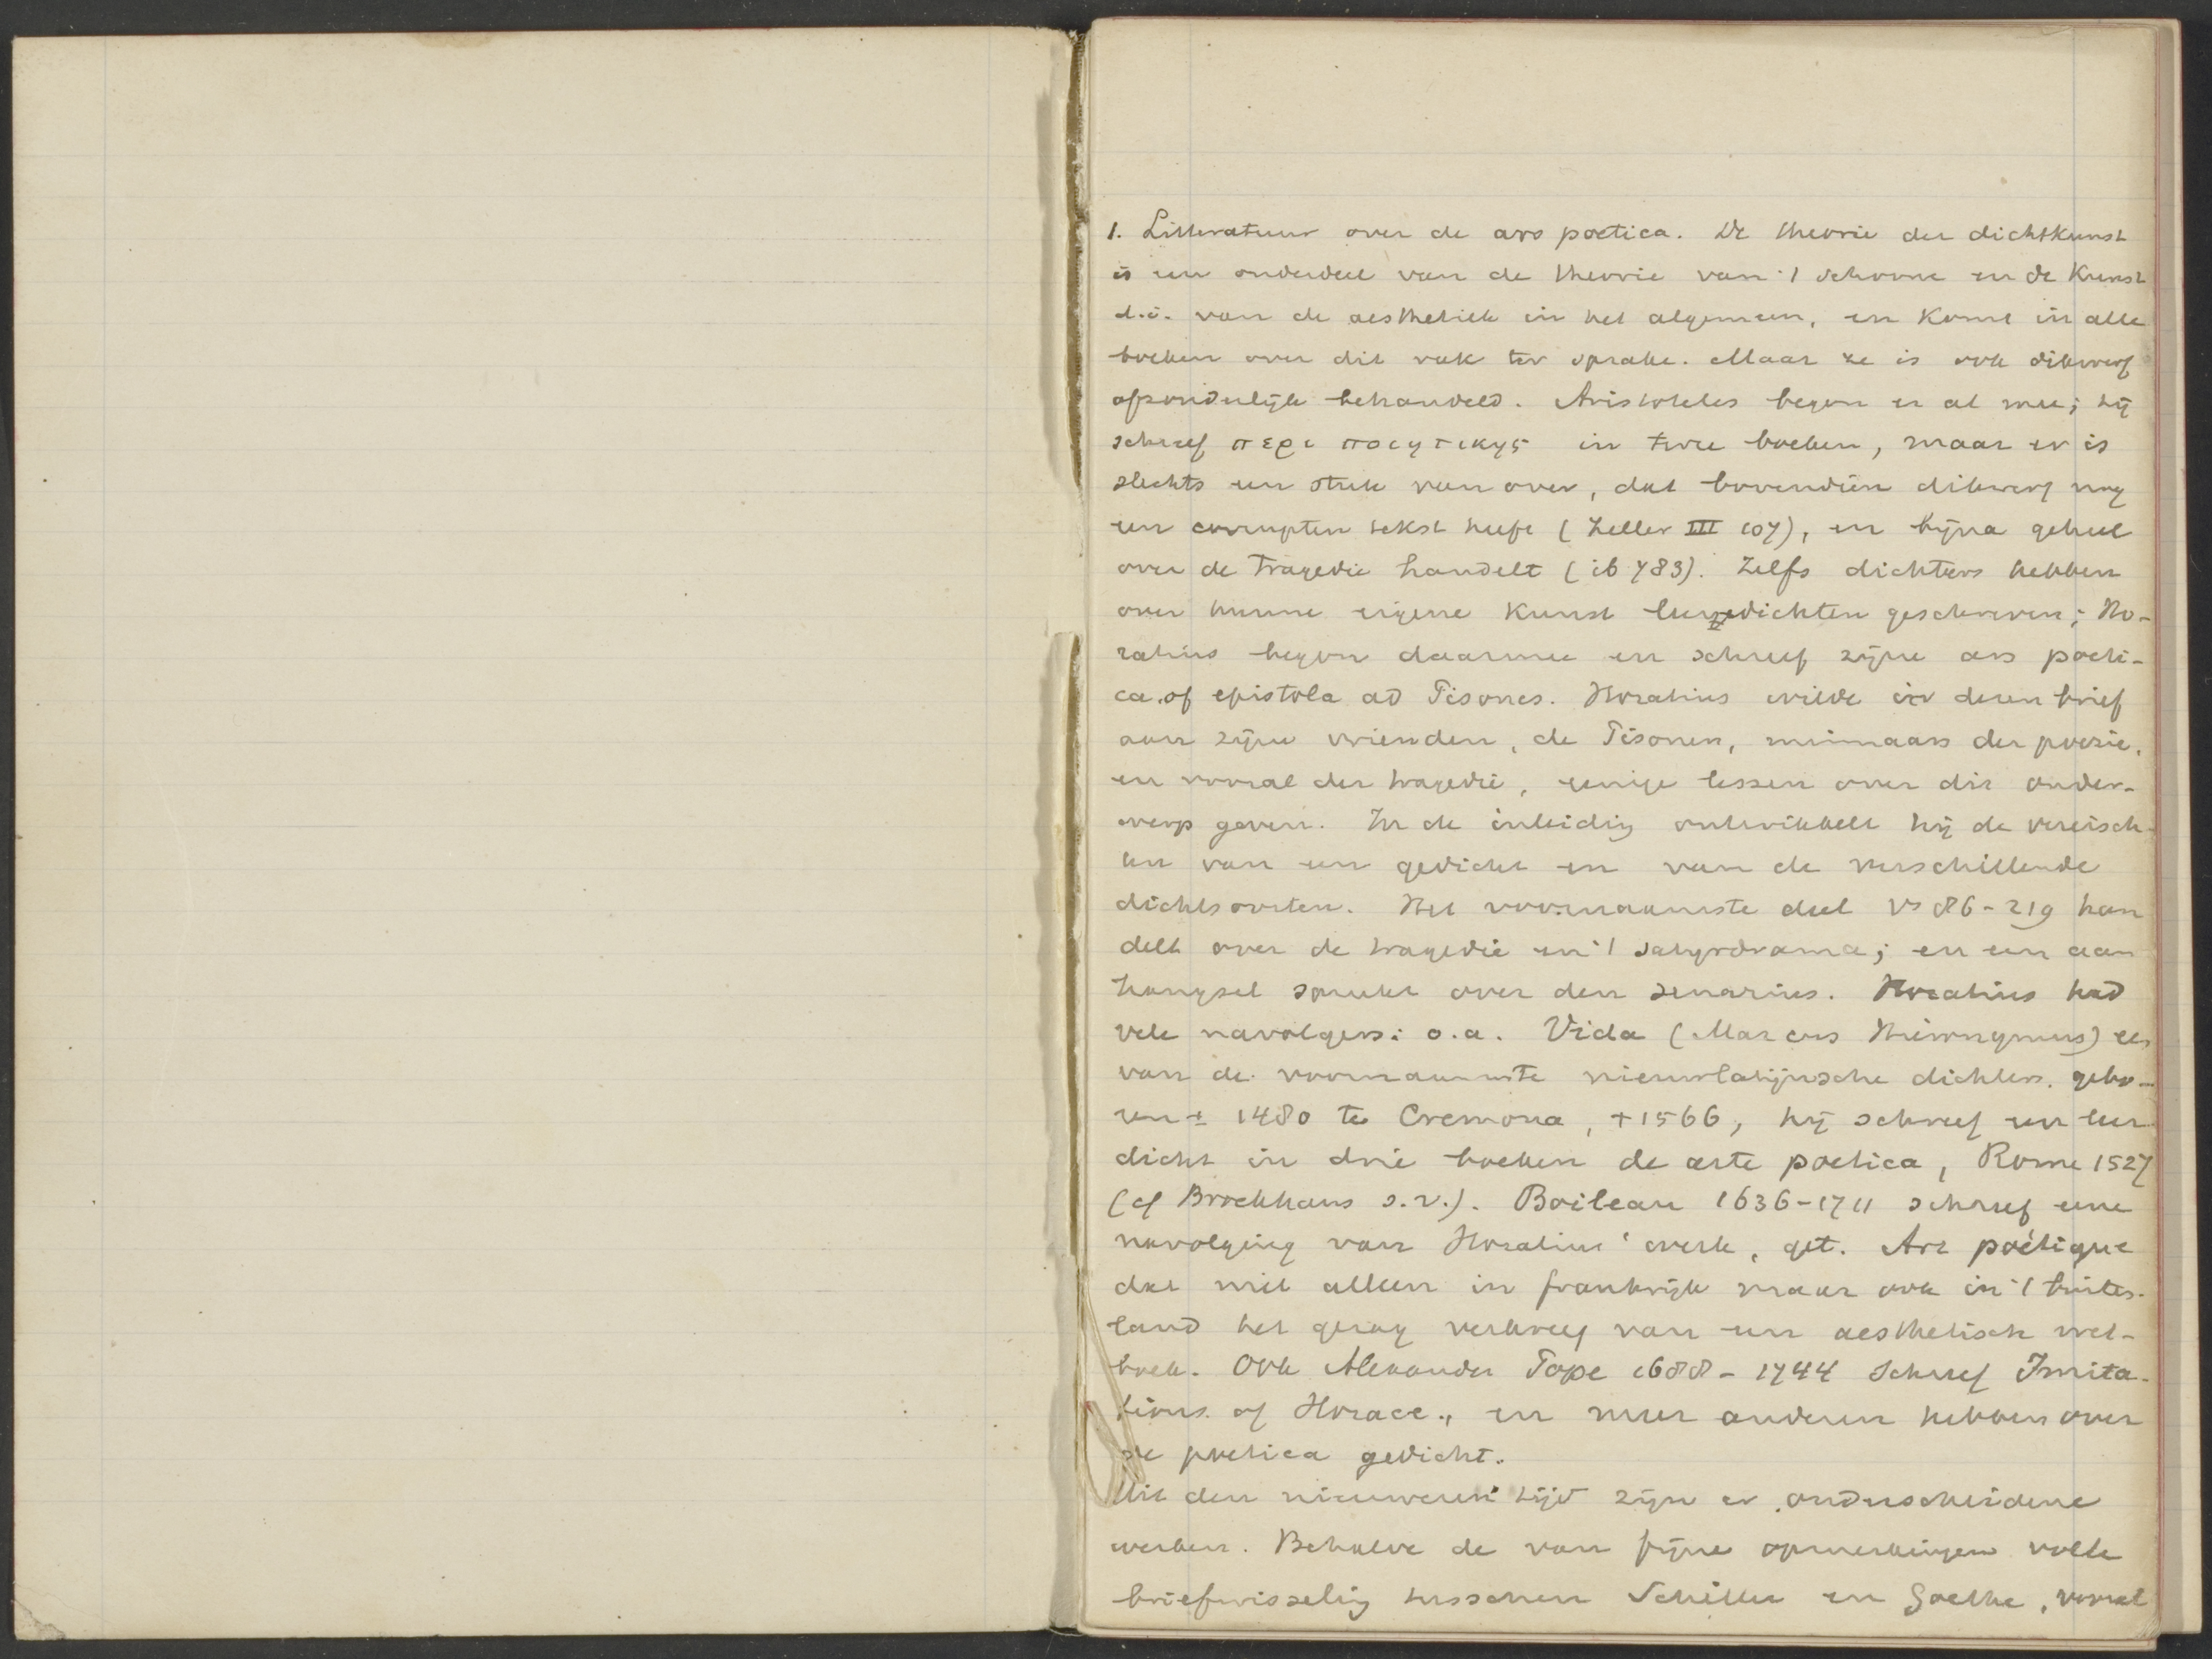 1. Litteratuur over de ars poetica. De theorie der dichtkunst
is een onderdeel van de theorie van 't schoone en de Kunst
d.i. van de aesthetiek in het algemeen, en komt in alle
boeken over dit vak ter sprake. Maar ze is ook dikwerf
afzonderlijk behandeld. Aristoteles begon er al mee; hij
schreef περι ποιητικης in twee boeken, maar er is
slechts een stuk van over, dat bovendien dikwerf nog
een corrupten tekst heeft (Zeller III 107), en bijna geheel
over de Tragedie handelt (ib 783). Zelfs dichters hebben
over hunne eigene Kunst leergedichten geschreven; Ho-
ratius begon daarmee en schreef zijne ars poeti-
ca of epistola ad Pisones. Horatius wilde in dezen brief
aan zijne vrienden, de Pisonen, minnaars der poezie,
en vooral der tragedie, eenige lessen over dit onder-
werp geven. In de inleidig ontwikkelt hij de vereisch-
ten van een gedicht en van de verschillende
dichtsoorten. Het voornaamste deel vs 86-219 han
delt over de tragedie en 't satyrdrama; en een aan
hangsel spreekt over den senarius. Horatius had
vele navolgers: o.a. Vida (Marcus Hieronymus) een
van de voornaamste nieuwlatijnsche dichters, gebo-
ren ± 1480 te Cremona, +1566, hij schreef een leer
dicht in drie boeken de arte poetica, Rome 1527
(cf Brockhaus s.v.). Boileau 1636-1711 schreef eene
navolging van Horatius' werk, get. Art poétique
dat niet alleen in frankrijk maar ook in 't buiten-
land het gezag verkreeg van een aesthetisch wet-
boek. Ook Alexander Pope 1688-1744 schreef Imita-
tions of Horace., en meer anderen hebben over
de poetica gedicht.
Uit den nieuweren tijd zijn er onderscheidene
werken. Behalve de van fijne opmerkingen volle
briefwisselig tusschen Schiller en Goethe, vooral